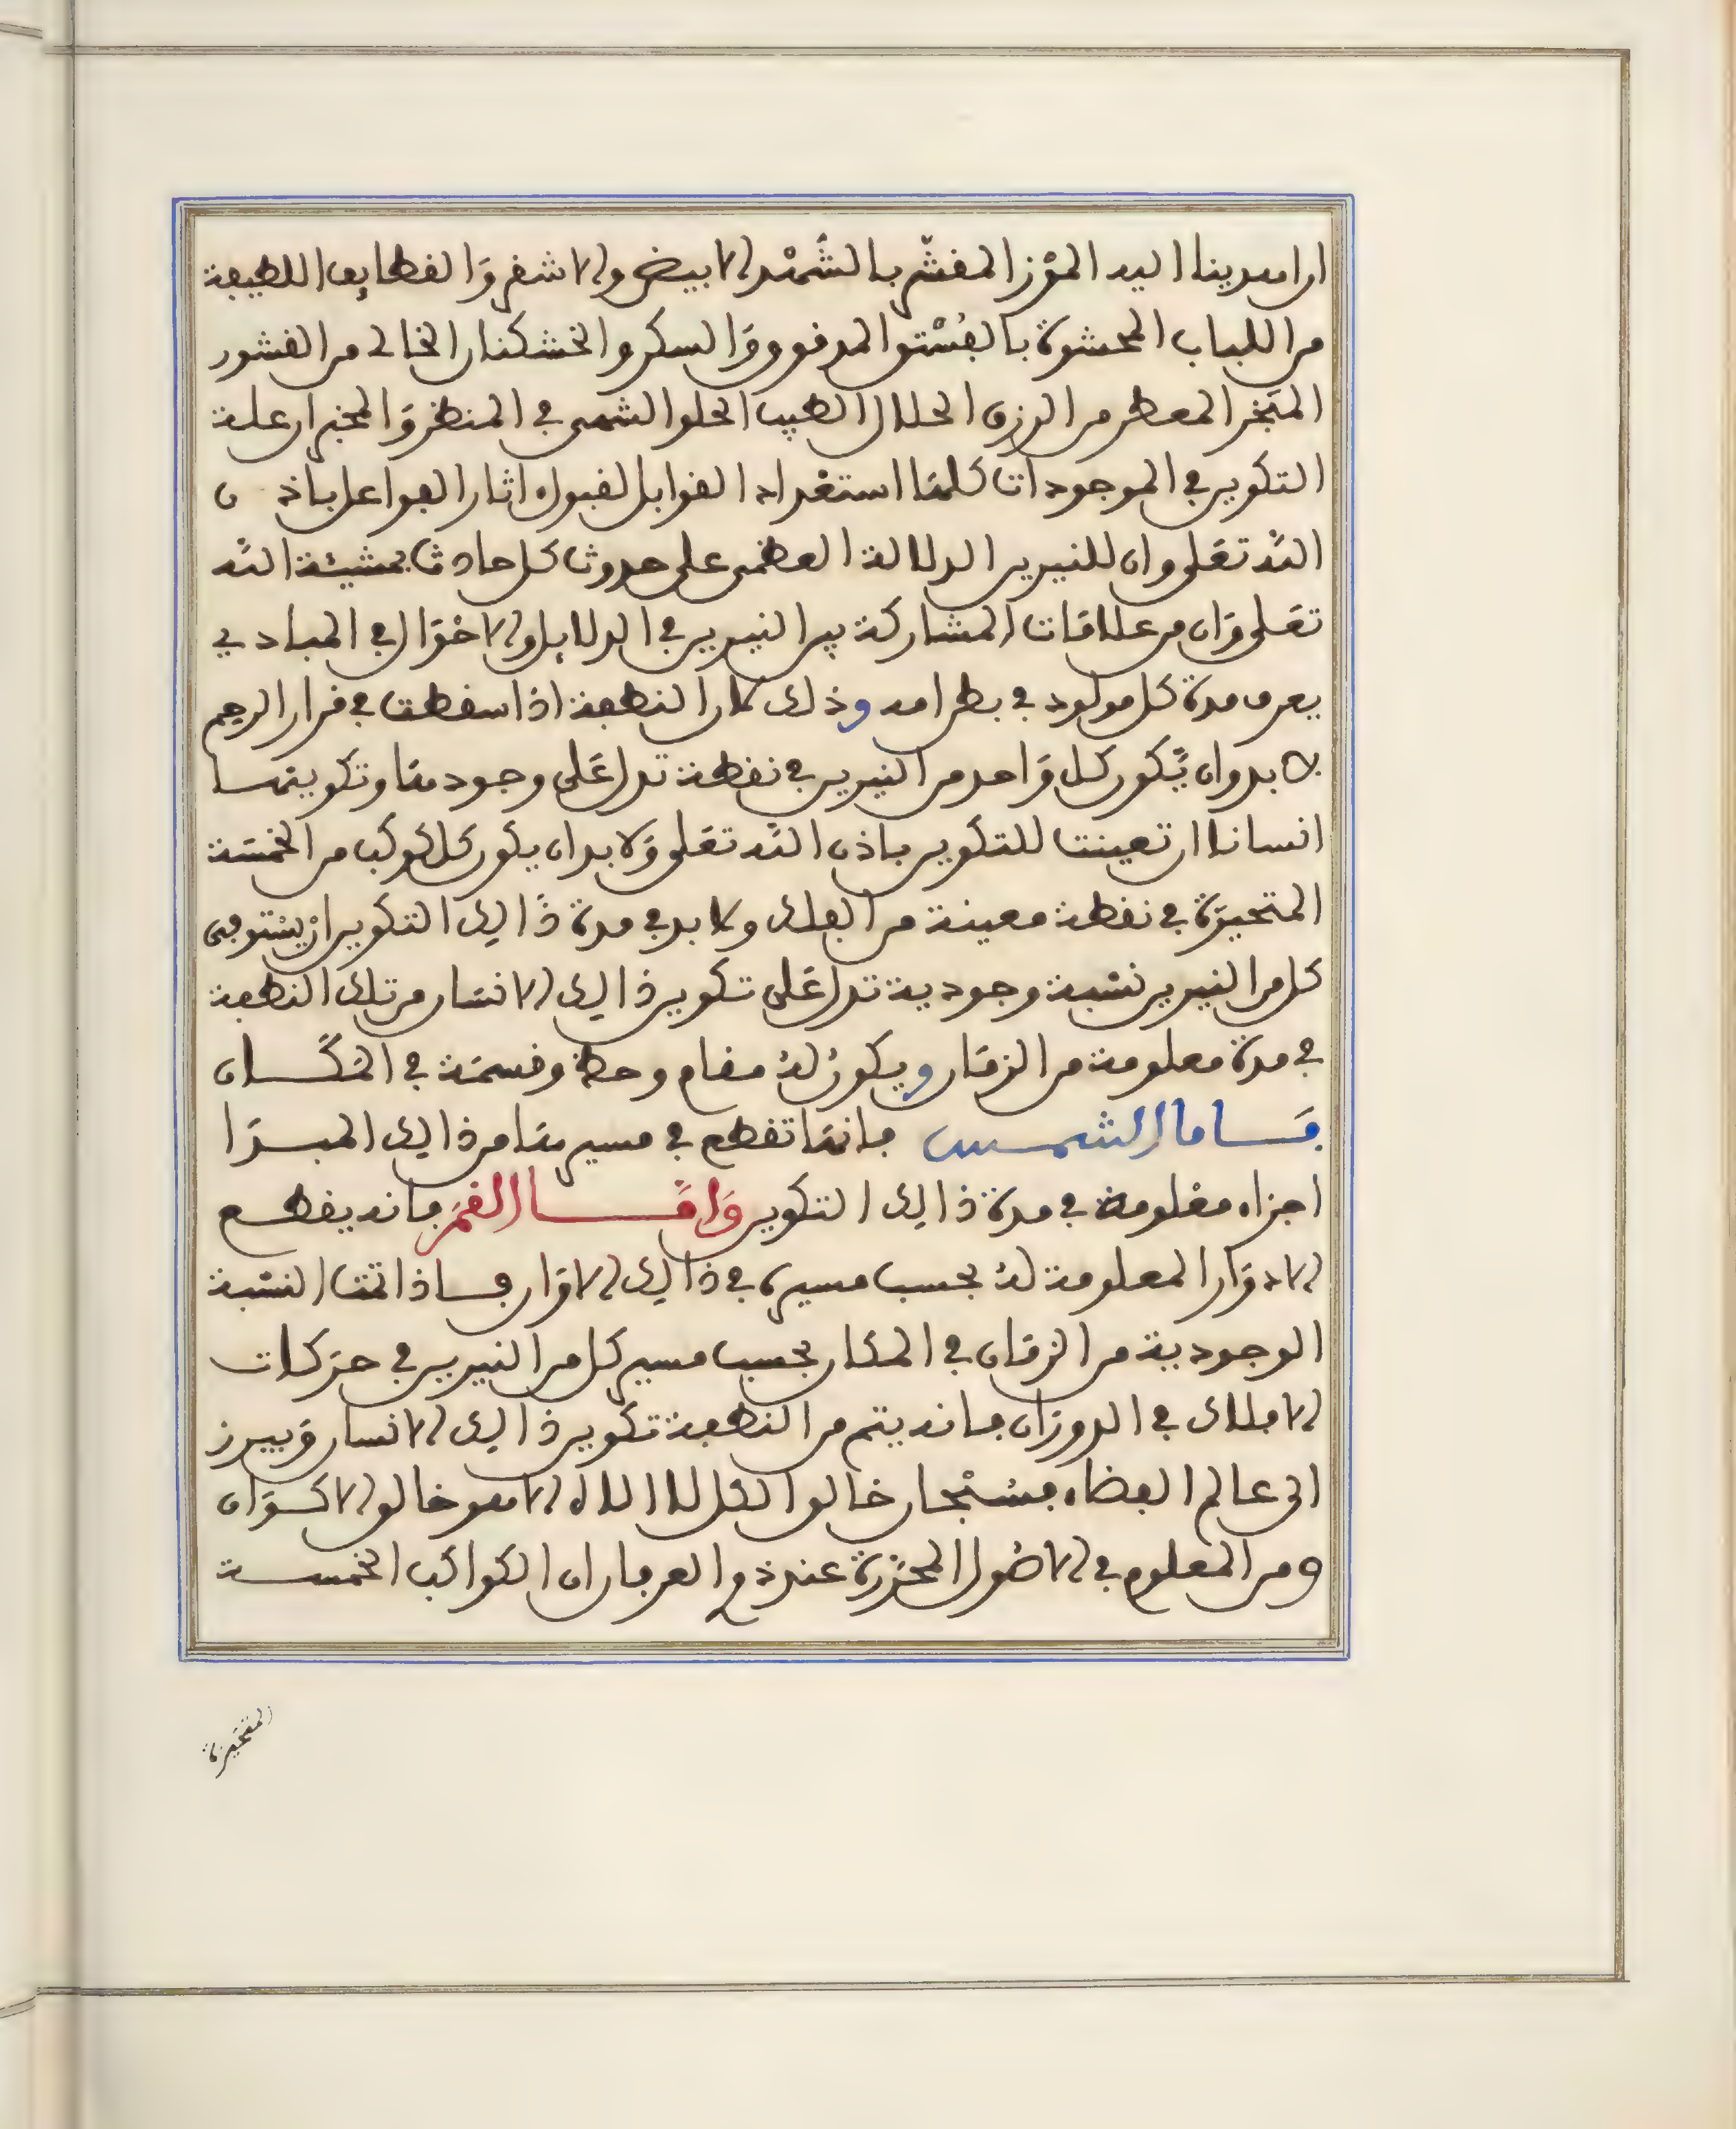 ان اهدينا اليه الموز المقشر بالشهد الابيض والاشقر والقطايف اللطيفة
من اللباب المحشوة بالفستق المدقوق والسكر والخشكنان الخالي من القشور
المبخر المعطر من الرزق الحلال الطيب الحلو الشهي في المنظر والمخبر ان علة
التكوين في الموجودات كلها استعداد القوابل لقبول اثار الفواعل باذن
الله تعلى وان للنيرين الدلالة العظمى على حدوث كل حادث بمشيئة الله
تعلى وان من علاقات المشاركة بين النيرين في الدلايل والاحوال في المبادي
يعرف مدة كل مولود في بطن امه وذلك كان النطفة اذا سقطت في قرار الرحم
لا بد وان يكون كل واحد من النيرين في نقطة تدل على وجودها وتكوينها
انسانا ان تعينت للتكوين باذن الله تعلى ولا بد ان يكون كل كوكب من الخمسة
المتحيزة في نقطة معينة من الفلك ولا بد في مدة ذالك التكوين ان يستوفى
كل من النيرين نسبة وجودية تدل على تكوين ذالك الانسان من تلك النطفة
في مدة معلومة من الزمان ويكون له مقام وحظ وقسمة في المكان
فاما الشمس فانها تقطع في مسيرها من ذالك المبدا
اجزاء معلومة في مدة ذالك التكوين واما القمر فانه يقطع
الادوار المعلومة له بحسب مسيره في ذالك الاوان فاذا تمت النسبة
الوجودية من الزمان في المكان بحسب مسير كل من النيرين في حركات
الافلاك في الدوران فانه يتم من النطفة تكوين ذالك الانسان ويبرز
الى عالم الفضاء فسبحان خالق الكل لا الاه الا هو خالق الاكوان
ومن المعلوم في الاصول المحررة عند ذوي العرفان ان الكواكب الخمسة
المتحيزة